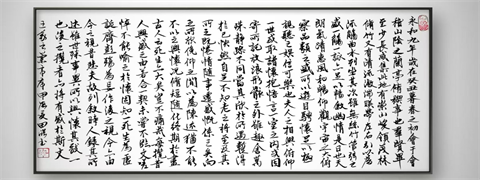 永和九年歲在癸丑暮春之初會于會
稽山陰之蘭亭脩稧事也群賢畢
至少長咸集此地有崇山峻領茂林
脩竹又有清流激湍暎帶左右引以為
流觴曲水列坐其次雖無絲竹管弦之
盛一觴一詠亦足以暢敘幽情是日也天
朗氣清惠風和暢仰觀宇宙之大俯
察品類之盛所以遊目騁懷足以極
視聽之娛信可樂也夫人之相與俯仰
一世或取諸懷抱悟言一室之內或因
寄所託放浪形骸之外雖趣舍萬
殊靜躁不同當其欣於所遇暫得
於己快然自足不知老之將至及其
所之既惓情隨事遷感慨係之矣向
之所欣俛仰之間以為陳迹猶不能
不以之興懷況脩短隨化終期於盡
古人云死生亦大矣豈不痛哉每攬昔
人興感之由若合一契未嘗不臨文嗟
悼不能喻之於懷固知一死生為虛
誕齊彭殤為妄作後之視今亦由
今之視昔悲夫故列敘時人錄其所
述雖世殊事異所以興懷其致一
也後之攬者亦將有感於斯文